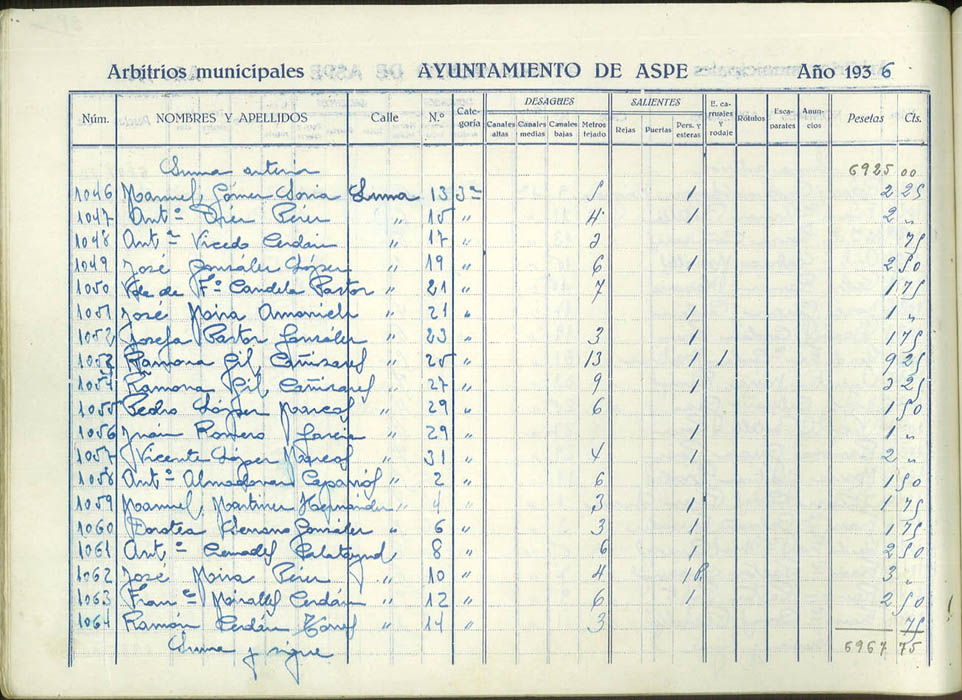 Arbitrios municipales AYUNTAMIENTO DE ASPE Año 1936
Núm. NOMBRES Y APELLIDOS Calle N.º Cate-goría DESAGUES Canales altas Canales medias Canales bajas Metros tejado SALIENTES Rejas Puertas Pers. y esteras E. ca-rruajes y rodaje Rótulos Esca-parates Anun-cios Pesetas Cts.
Suma anterior 6925 00
1046 Manuel Gómez Soria Luna 13 3ª 5 1 2 25
1047 Antº Pérez 15 " 4 1 2 "
1048 Antº Vicedo Cerdán " 17 " 3 75
1049 José González López " 19 " 6 1 2 50
1050 Vda de Fº Candela Pastor " 21 " 7 1 75
1051 José Mira " 21 " 1 1 "
1052 Josefa Pastor González " 23 " 3 1 1 75
1053 Ramona Gil Cañizares " 25 " 13 1 1 9 25
1054 Ramona Gil Cañizares " 27 " 9 1 3 25
1055 Pedro López " 29 " 6 1 50
1056 Juán Romero García " 29 " 1 1 "
1057 Vicente López " 31 " 4 1 2 "
1058 Antº Almodovar " 2 " 6 1 50
1059 Manuel Martínez Hernández " 4 " 3 1 1 75
1060 Dorotea Serrano González " 6 " 3 1 1 75
1061 Antº Cremades Calatayud 8 " 6 1 2 50
1062 José Mira Pérez " 10 " 4 1 3 "
1063 Franº Miralles Cerdán " 12 " 6 1 2 50
1064 Ramón Cerdán " 14 " 3 75
Suma y sigue 6967 75